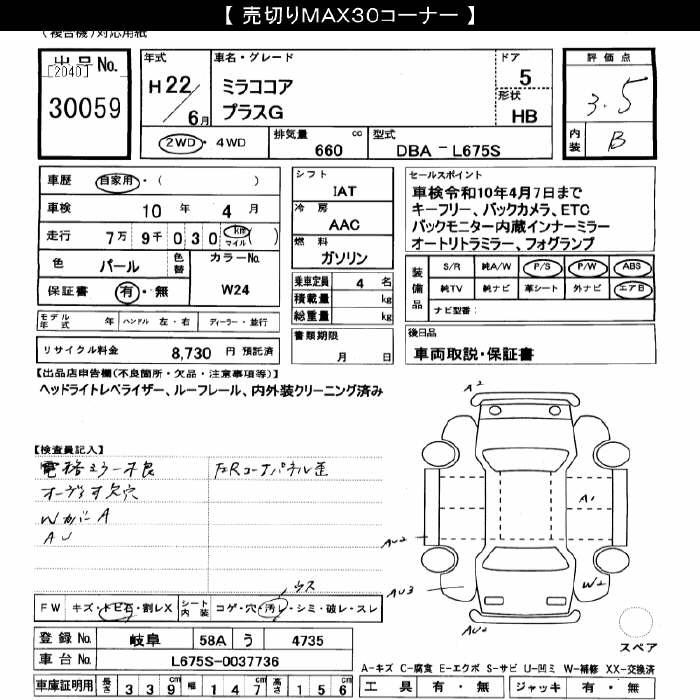 【 売切りMAX30コーナー 】
(複合機)対応用紙
出品No.
[2040]
30059
年式
H22/6月
車名・グレード
ミラココア
プラスG
ドア
5
形状
HB
評価点
3.5
内装
B
2WD・4WD
排気量 cc
660
型式
DBA-L675S
車歴 自家用・( )
車検 10年 4月
走行 7万 9千 030 km マイル( )
色 パール
色替
カラーNo.
W24
保証書 有・無
モデル年式 年 ハンドル 左・右 ディーラー・並行
リサイクル料金 8,730 円 預託済
シフト
IAT
冷房
AAC
燃料
ガソリン
乗車定員 4 名
積載量 kg
総重量 kg
書類期限
月 日
セールスポイント
車検令和10年4月7日まで
キーフリー、バックカメラ、ETC
バックモニター内蔵インナーミラー
オートリトラミラー、フォグランプ
装備品
S/R 純A/W P/S P/W ABS
純TV 純ナビ 革シート 外ナビ エアB
ナビ型番:
後日品
車両取説・保証書
【出品店申告欄(不良箇所・欠品・注意事項等)】
ヘッドライトレベライザー、ルーフレール、内外装クリーニング済み
【検査員記入】
電格ミラー不良
オーディオ欠穴
Wカバー A
AU
FRコーナパネル歪
A2
A1
AU2
AU3
W2
AU2
スペア
FW キズ・トビ石・割レX
シート内装 コゲ・穴・汚レ・シミ・破レ・スレ
ウス
登録No. 岐阜 58A う 4735
車台No. L675S-0037736
車庫証明用 長さ 339cm 幅 147cm 高さ 156cm
A-キズ C-腐食 E-エクボ S-サビ U-凹ミ W-補修 XX-交換済
工具 有・無 ジャッキ 有・無